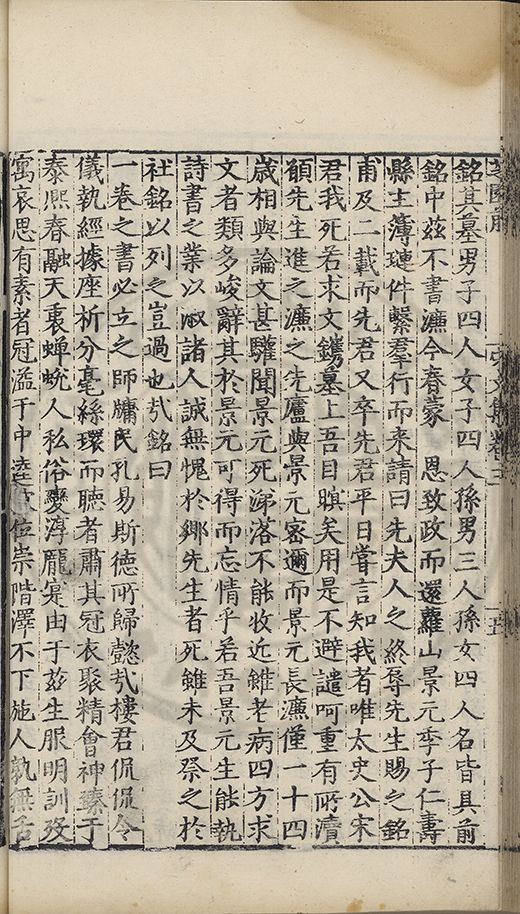 銘其墓男子四人女子四人孫男三人孫女四人名皆具前
銘中茲不書濂今春蒙　恩致政而還蘿山景元季子仁壽
縣主薄璉件繫羣行而来請曰先夫人之終辱先生賜之銘
甫及一載而先君又卒先君平日嘗言知我者唯太史公宋
君我死若求文鐫墓上吾目瞑矣用是不避譴呵重有所瀆
願先生進之濂之先廬與景元密邇而景元長濂僅一十四
歲相與論文甚驩聞景元死涕落不能收近雖老病四方求
文者類多峻辭其於景元可得而忘情乎若吾景元生能執
詩書之業以淑諸人誠無愧於鄉先生者死雖未及祭之於
社銘以列之豈過也㢤銘曰
一卷之書必立之師牖民孔易斯德所歸懿㢤樓君侃侃令
儀執經據座析分毫絲環而聽者肅其冠衣聚精會神臻于
泰熈春融天褱蟬蛻人私俗變淳龐寔由于茲生服明訓歿
寓哀思有素者冠溢于中逵位崇階澤不下施人孰無舌